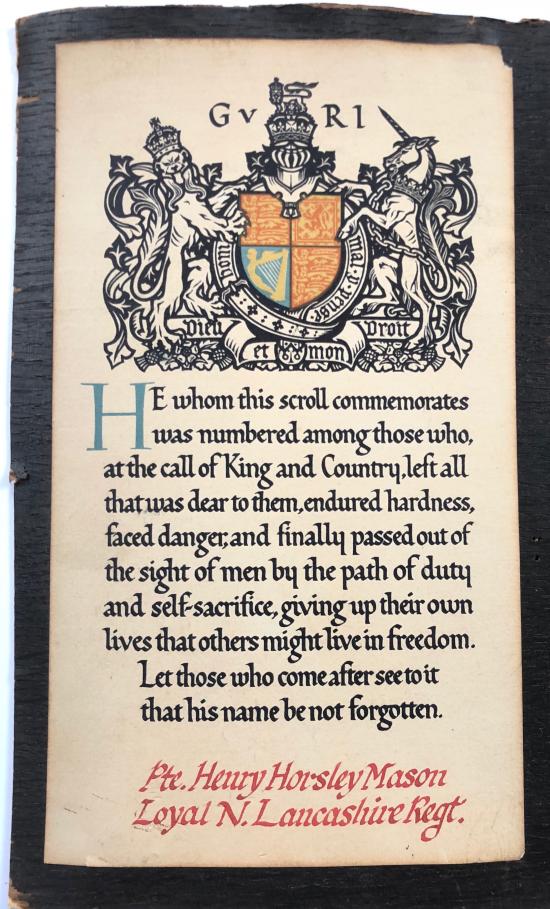 GV RI
Honi mal y pense
Dieu et mon Droit
HE whom this scroll commemorates
was numbered among those who,
at the call of King and Country, left all
that was dear to them, endured hardness,
faced danger, and finally passed out of
the sight of men by the path of duty
and self-sacrifice, giving up their own
lives that others might live in freedom.
Let those who come after see to it
that his name be not forgotten.
Pte. Henry Horsley Mason
Loyal N. Lancashire Regt.